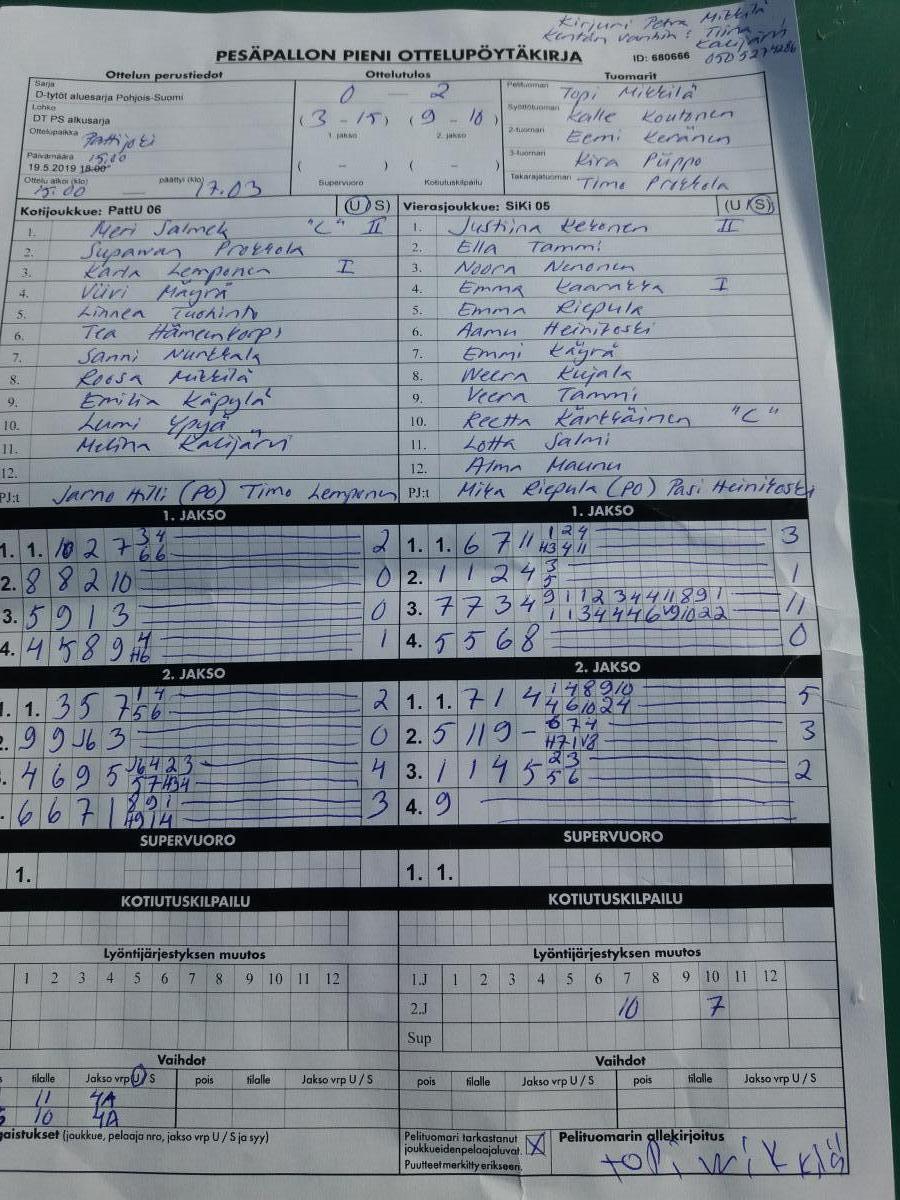 Kirjuri Petra Mikkilä
Kentän vanhin: Tiina
Kalijärvi
PESÄPALLON PIENI OTTELUPÖYTÄKIRJA
ID: 680666
Ottelun perustiedot Ottelutulos Tuomarit
Sarja
D-tytöt aluesarja Pohjois-Suomi
0 — 2
Pelituomari Topi Mikkilä
Lohko
DT PS alkusarja
(3 - 15) (9 - 10)
1. jakso 2. jakso
Syöttötuomari Kalle Koutonen
Ottelupaikka Pattijoki
2-tuomari Eemi Keränen
Päivämäärä 15.00
19.5.2019 18:00
( - ) ( - )
Supervuoro Kotiutuskilpailu
3-tuomari Kira Piippo
Ottelu alkoi (klo) päättyi (klo)
15.00 — 17.03
Takarajatuomari Timo Prokkola
Kotijoukkue: PattU 06 (U/S)
Vierasjoukkue: SiKi 05 (U/S)
1. Meri Salmek "C" II
1. Justiina Kekonen II
2. Supawan Prokkola
2. Ella Tammi
3. Karla Lemponen I
3. Noora Nenonen
4. Viivi Mäyrä
4. Emma Kaarakka I
5. Linnea Tuohinto
5. Emma Riepula
6. Tea Hämeenkorpi
6. Aamu Heinikoski
7. Sanni Nurkkala
7. Emmi Käyrä
8. Roosa Mikkilä
8. Weera Kujala
9. Emilia Käpylä
9. Veera Tammi
10. Lumi Ypyä
10. Reetta Kärkkäinen "C"
11. Melina Kalijärvi
11. Lotta Salmi
12.
12. Alma Maunu
PJ:t Jarno Hilli (PO) Timo Lemponen
PJ:t Mika Riepula (PO) Pasi Heinikoski
1. JAKSO 1. JAKSO
1. 1. 10 2 7 34 66 2
1. 1. 6 7 11 1 2 4 H3 4 11 3
2. 8 8 2 10 0
2. 1 1 2 4 3 5 1
3. 5 9 1 3 0
3. 7 7 3 4 11
4. 4 5 8 9 4 H6 1
4. 5 5 6 8 0
2. JAKSO 2. JAKSO
1. 1. 3 5 7 14 56 2
1. 1. 7 1 4 1 4 8 9 10 4 6 10 2 4 5
9 9 J6 3 0
2. 5 11 9 - 6 7 4 H7 1 V8 3
4 6 9 5 J6 4 2 3 5 7 H3 4 4
3. 1 1 4 5 2 3 5 6 2
6 6 7 1 8 9 1 H9 1 4 3
4. 9
SUPERVUORO SUPERVUORO
1. 1. 1.
KOTIUTUSKILPAILU KOTIUTUSKILPAILU
Lyöntijärjestyksen muutos Lyöntijärjestyksen muutos
1 2 3 4 5 6 7 8 9 10 11 12
1.J 1 2 3 4 5 6 7 8 9 10 11 12
2.J 10 7
Sup
Vaihdot Vaihdot
tilalle Jakso vrp U / S pois tilalle Jakso vrp U / S
pois tilalle Jakso vrp U / S pois tilalle Jakso vrp U / S
11 4A
10 4A
(joukkue, pelaaja nro, jakso vrp U / S ja syy)
Pelituomari tarkastanut
joukkueidenpelaajaluvat. X
Puutteet merkitty erikseen.
Pelituomarin allekirjoitus
topi mikkilä